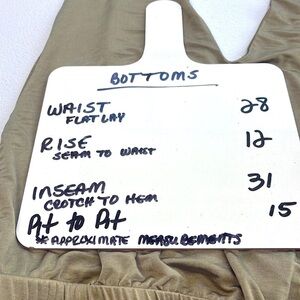 BOTTOMS
WAIST 28
FLAT LAY
RISE 12
SEAM TO WAIST
INSEAM 31
CROTCH TO HEM
Pit to Pit 15
* APPROXIMATE MEASUREMENTS